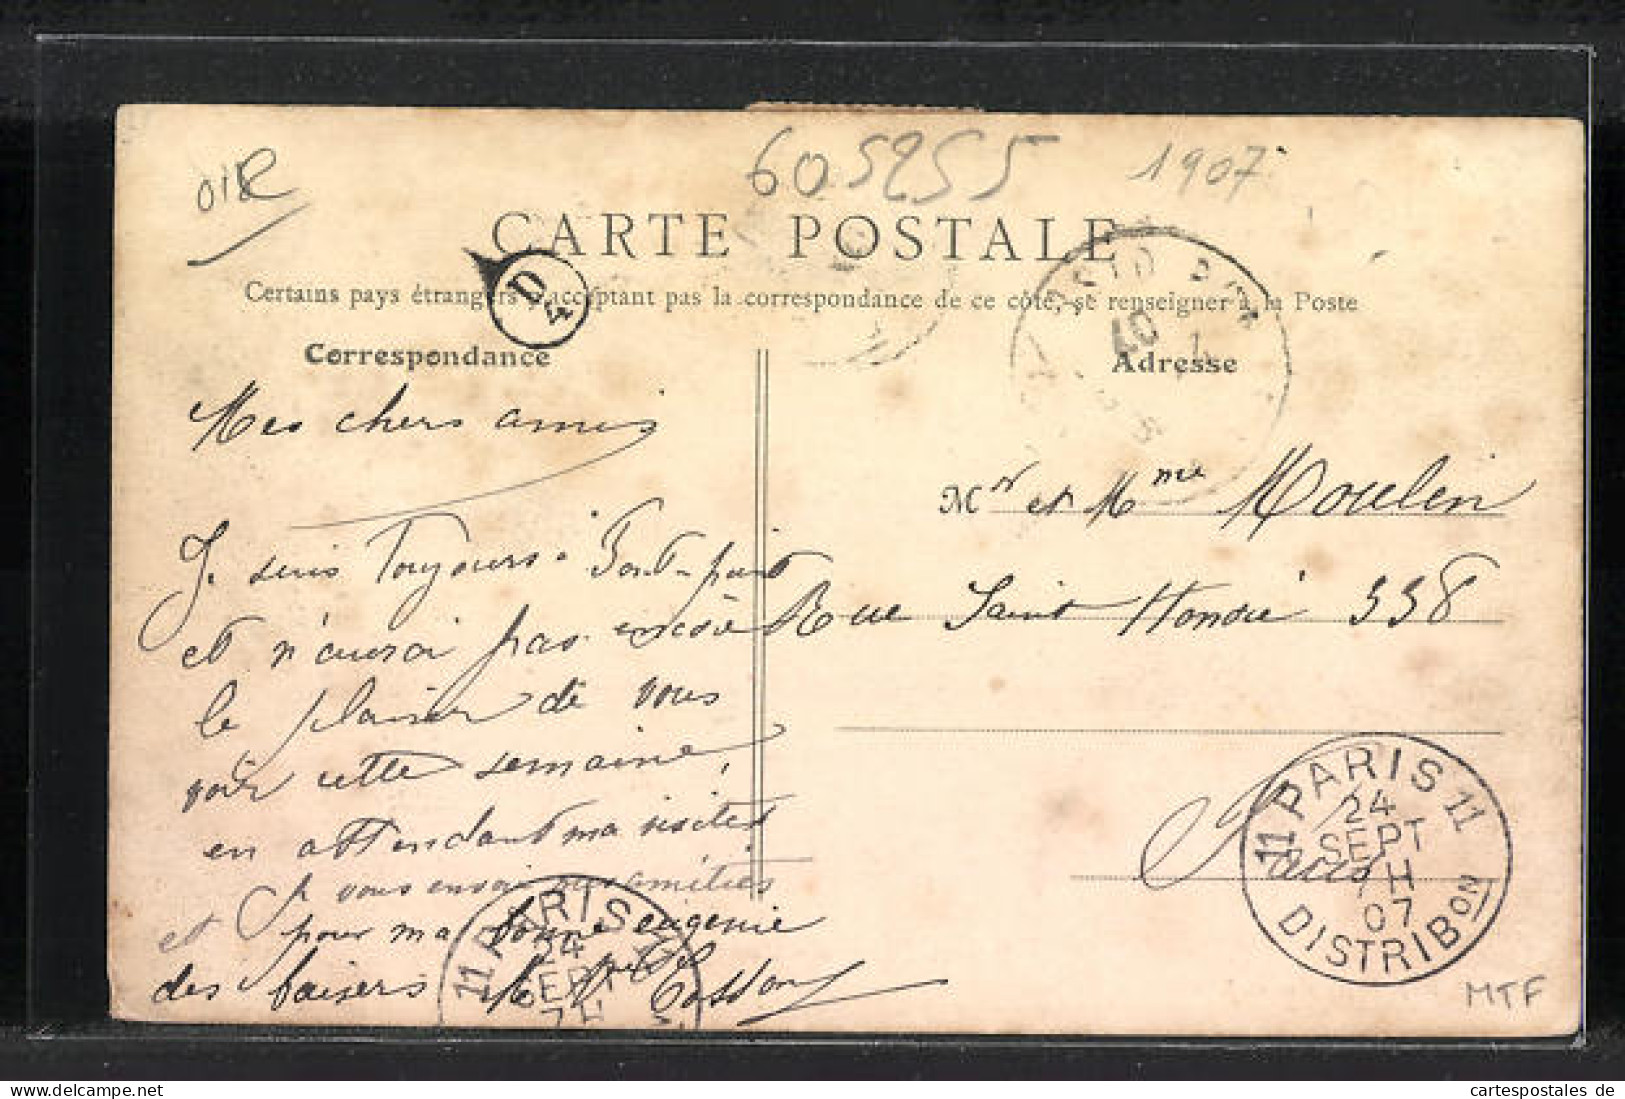 605255
1907
CARTE POSTALE
D
4
Certains pays étrangers n'acceptant pas la correspondance de ce côté, se renseigner à la Poste
Correspondance
Adresse
Mes chers amis
Je suis Toujours à Pont-
et n'aurai pas encore
le plaisir de vous
voir cette semaine,
en attendant ma visite
Je vous envoie mes amitiés
et pour ma bonne eugenie
des baisers
Mr et Mme Moulin
Rue Saint Honoré 338
Paris
11 PARIS 11
24
SEPT
7 H
07
DISTRIBON
11 PARIS 11
24
SEPT
7 H
MTF
cartespostales de